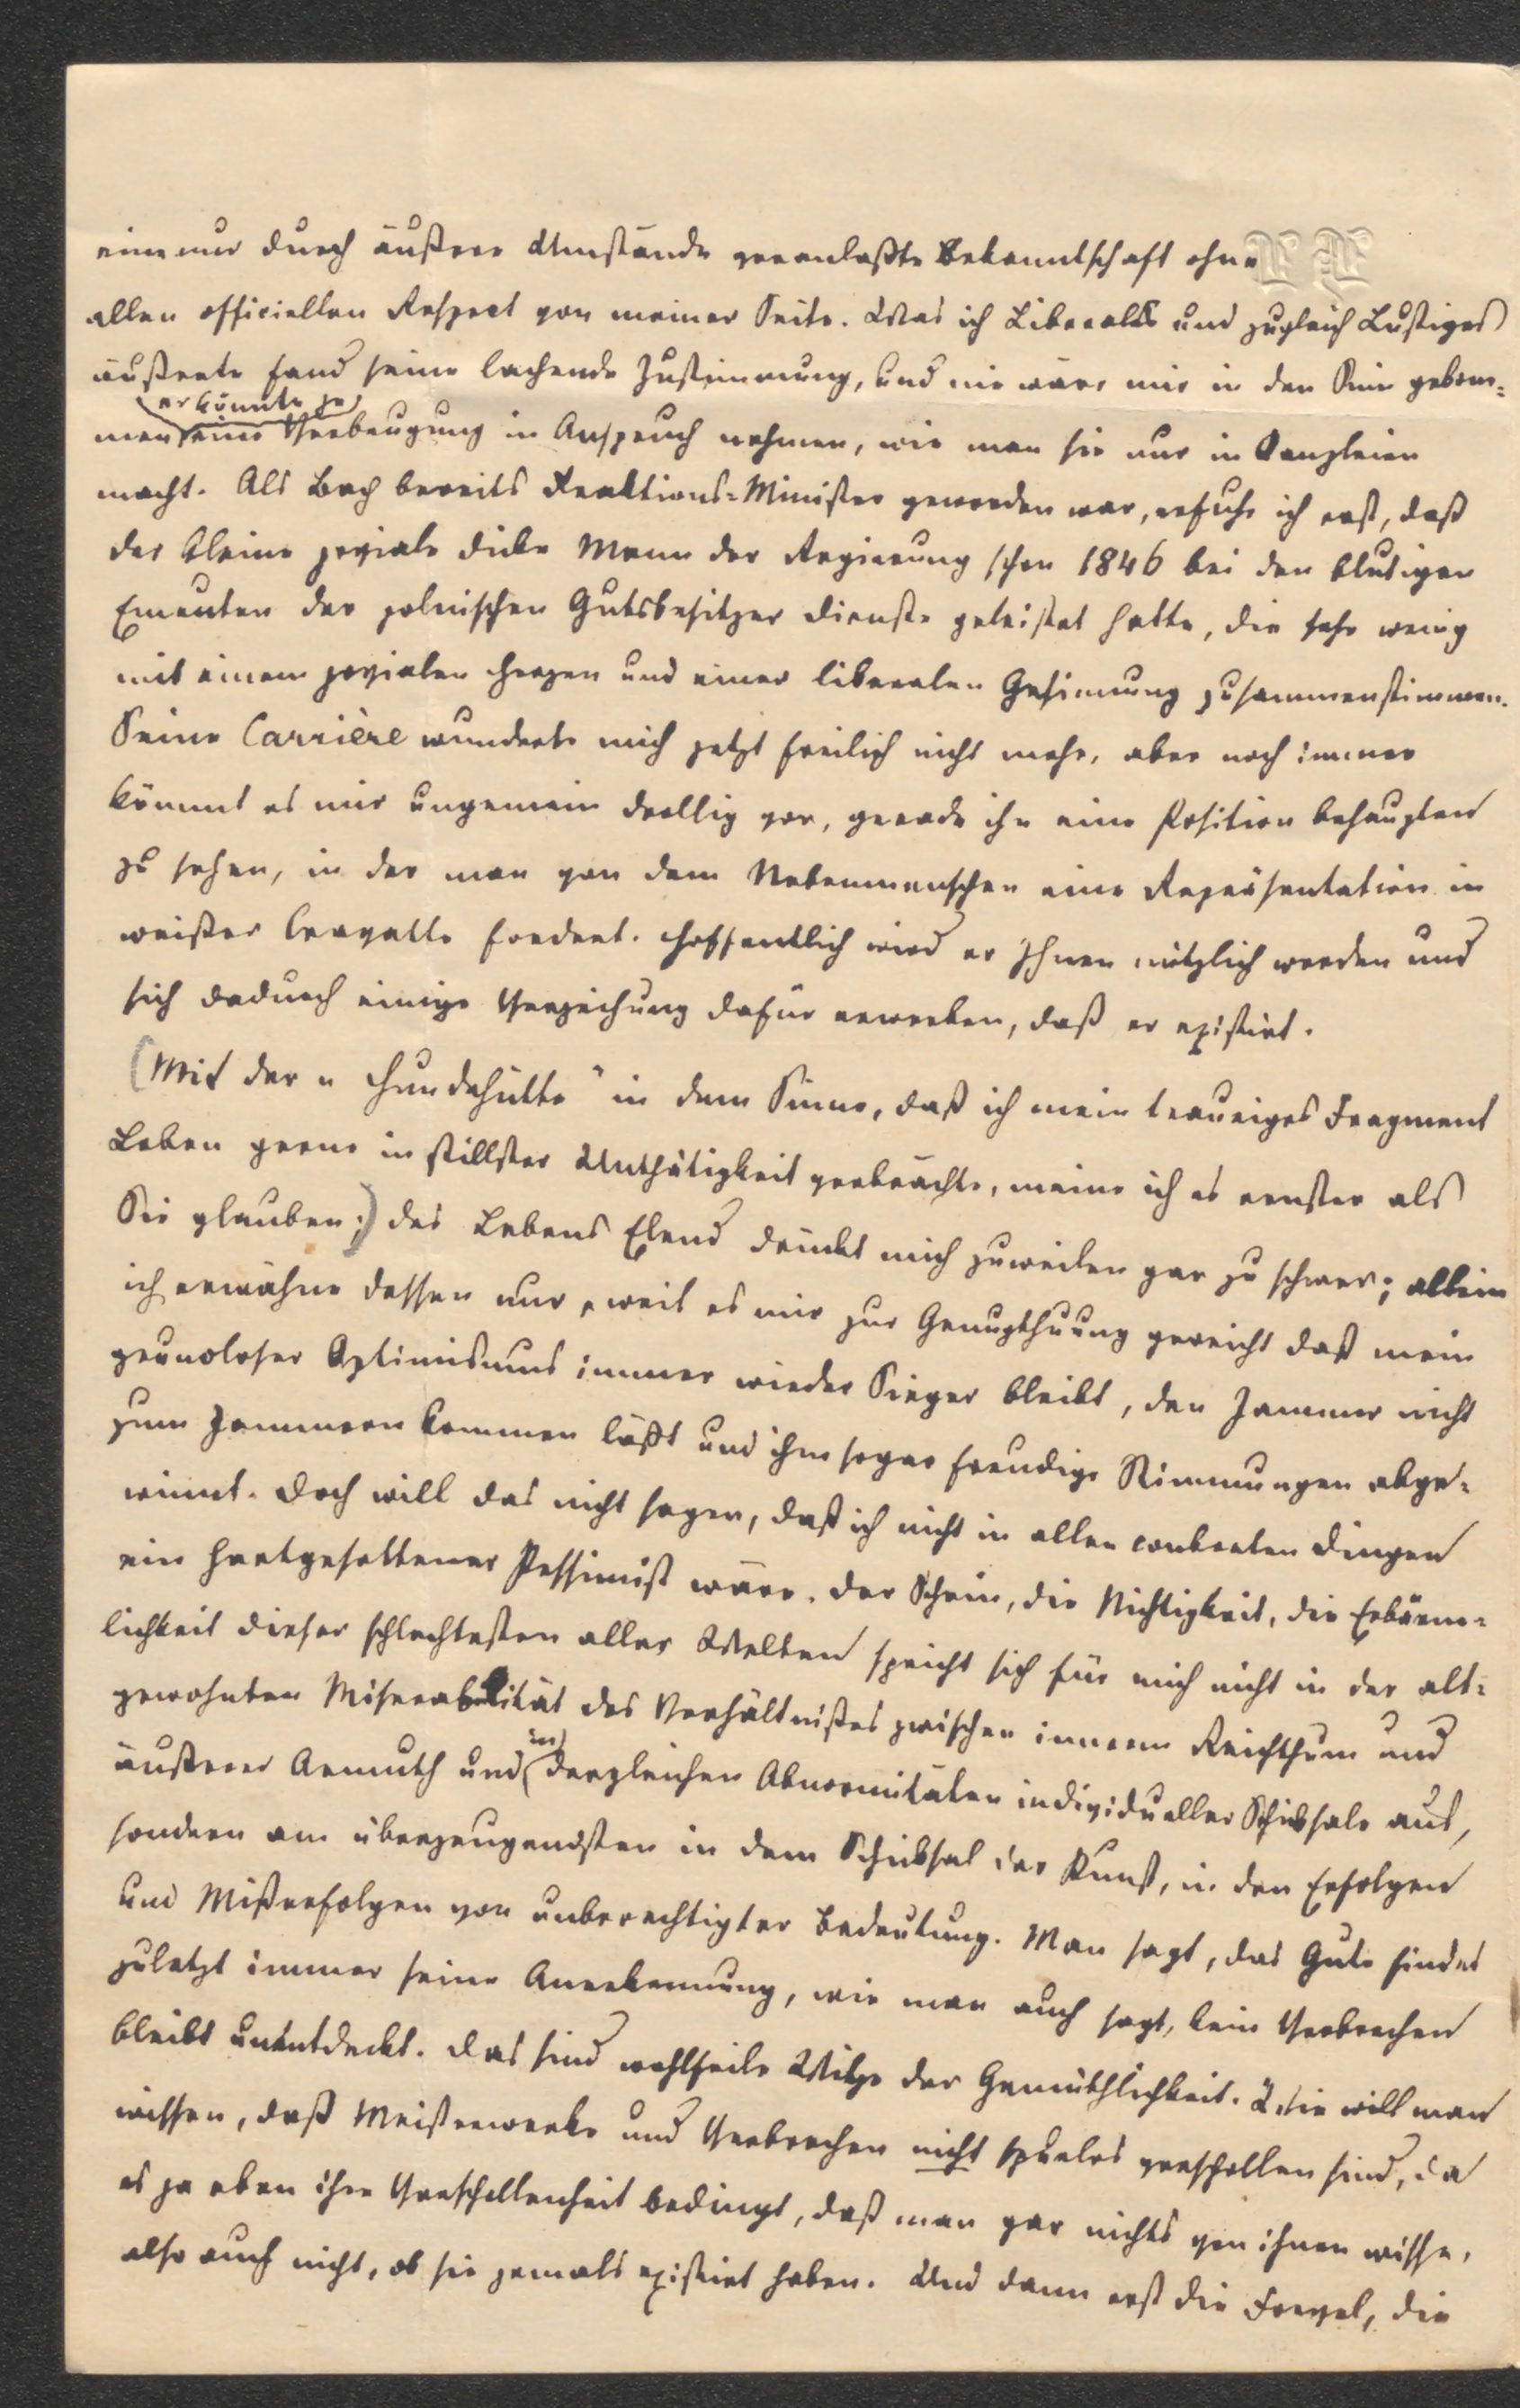 eine nur durch äußere Umstände veranlaßte Bekanntschaft ohne
allen officiellen Respect von meiner Seite. Was ich Liberales und zugleich Lustiges
äußerte fand seine lachende Zustimmung, und nie wäre mir in den Sinn gekom=
men, er könnte je eine Verbeugung in Anspruch nehmen, wie man sie nur in Kanzleien
macht. Als Bach bereits Reaktions=Minister geworden war, erfuhr ich erst, daß
der kleine joviale dicke Mann der Regierung schon 1846 bei den blutigen
Emeuten der polnischen Gutsbesitzer Dienste geleistet hatte, die sehr wenig
mit einem jovialen Herzen und einer liberalen Gesinnung zusammenstimmen.
Seine Carrière wunderte mich jetzt freilich nicht mehr, aber noch immer
kömmt es mir ungemein drollig vor, gerade ihn eine Position behaupten
zu sehen, in der man von dem Nebenmenschen eine Repräsentation in
weißer Cravatte fordert. Hoffentlich wird er Ihnen nützlich werden und
sich dadurch einige Verzeihung dafür erwerben, daß er existirt.
(Mit der „Hundehütte" in dem Sinne, daß ich mein trauriges Fragment
Leben gerne in stillster Unthätigkeit verbrächte, meine ich es ernster als
Sie glauben;) des Lebens Elend drückt mich zuweilen gar zu schwer; allein
ich erwähne dessen nur, weil es mir zur Genugthuung gereicht daß mein
grundloser Optimismus immer wieder Sieger bleibt, den Jammer nicht
zum Jammern kommen läßt und ihm sogar freudige Stimmungen abge=
winnt. Doch will das nicht sagen, daß ich nicht in allen conkreten Dingen
ein hartgesottener Pessimist wäre. Der Schein, die Nichtigkeit, die Erbärm=
lichkeit dieser schlechtesten aller Welten spricht sich für mich nicht in der alt=
gewohnten Miserabilität des Verhältnißes zwischen innerem Reichthum und
äußerer Armuth und in dergleichen Abnormitäten individueller Schicksale aus,
sondern am überzeugendsten in dem Schicksal der Kunst, in den Erfolgen
und Mißerfolgen von unberechtigter Bedeutung. Man sagt, das Gute findet
zuletzt immer seine Anerkennung, wie man auch sagt, kein Verbrechen
bleibt unentdeckt. Das sind wohlfeile Witze der Gemüthlichkeit. Wie will man
wissen, daß Meisterwerke und Verbrechen nicht spurlos verschollen sind, da
es ja eben ihre Verschollenheit bedingt, daß man gar nichts von ihnen wisse,
also auch nicht, ob sie jemals existirt haben. Und dann erst die Frevel, die